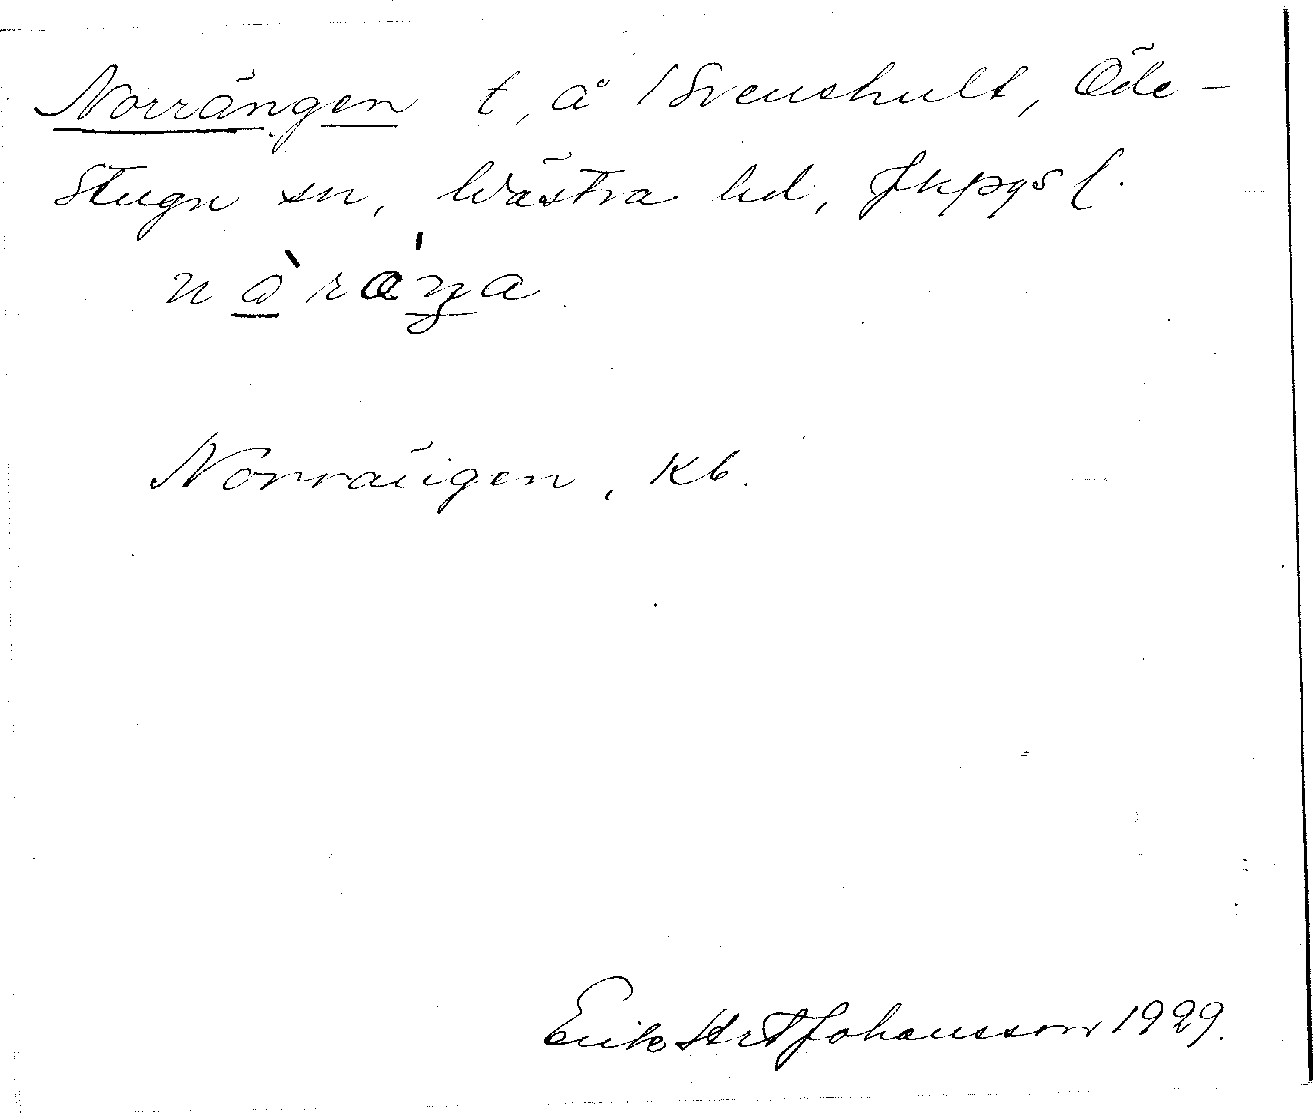 Norrängen t, å /Svenshult, Öde-
stugu sn, Västra hd, Jkpgs l.
Norrängen, Kb.
Erik Johansson 1929.